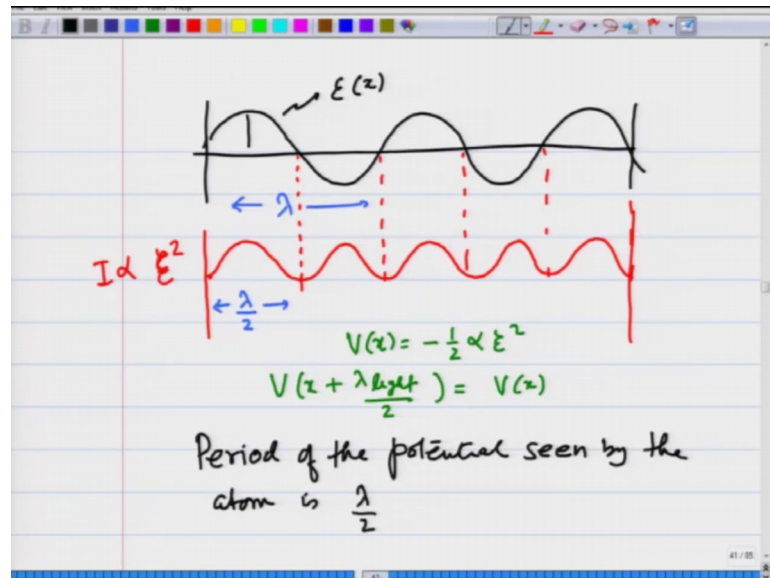 ε(x)
← λ →
I ∝ ε²
← λ/2 →
V(x) = - 1/2 α ε²
V(x + λlight/2) = V(x)
Period of the potential seen by the
atom is λ/2
41 / 85